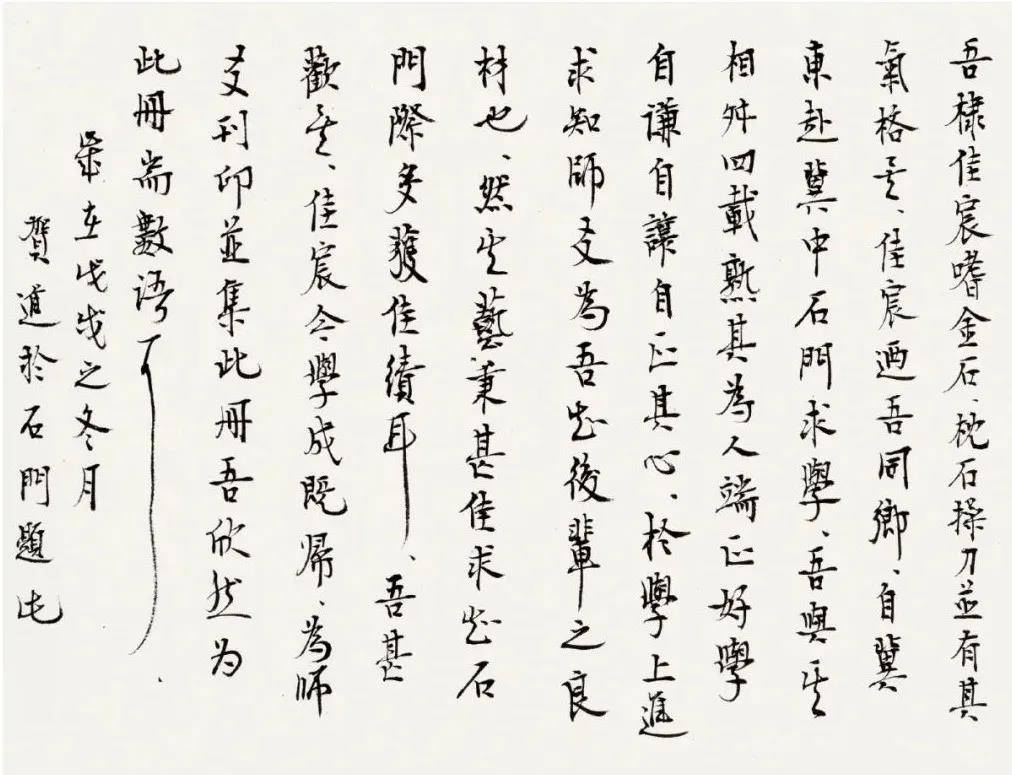 吾棣佳宸嗜金石、枕石操刀並有其
氣格矣、佳宸迺吾同鄉、自冀
東赴冀中石門求學、吾與其
相舛四載熟其為人端正好學
自謙自讓自正其心、於學上進
求知師友為吾輩後輩之良
材也、然其藝業甚佳求於石
門際多獲佳績耳、吾甚
歡矣、佳宸今學成既歸、為師
友刊印並集此冊吾欣然为
此冊耑數语可
歲在戊戌之冬月
賀道於石門題此